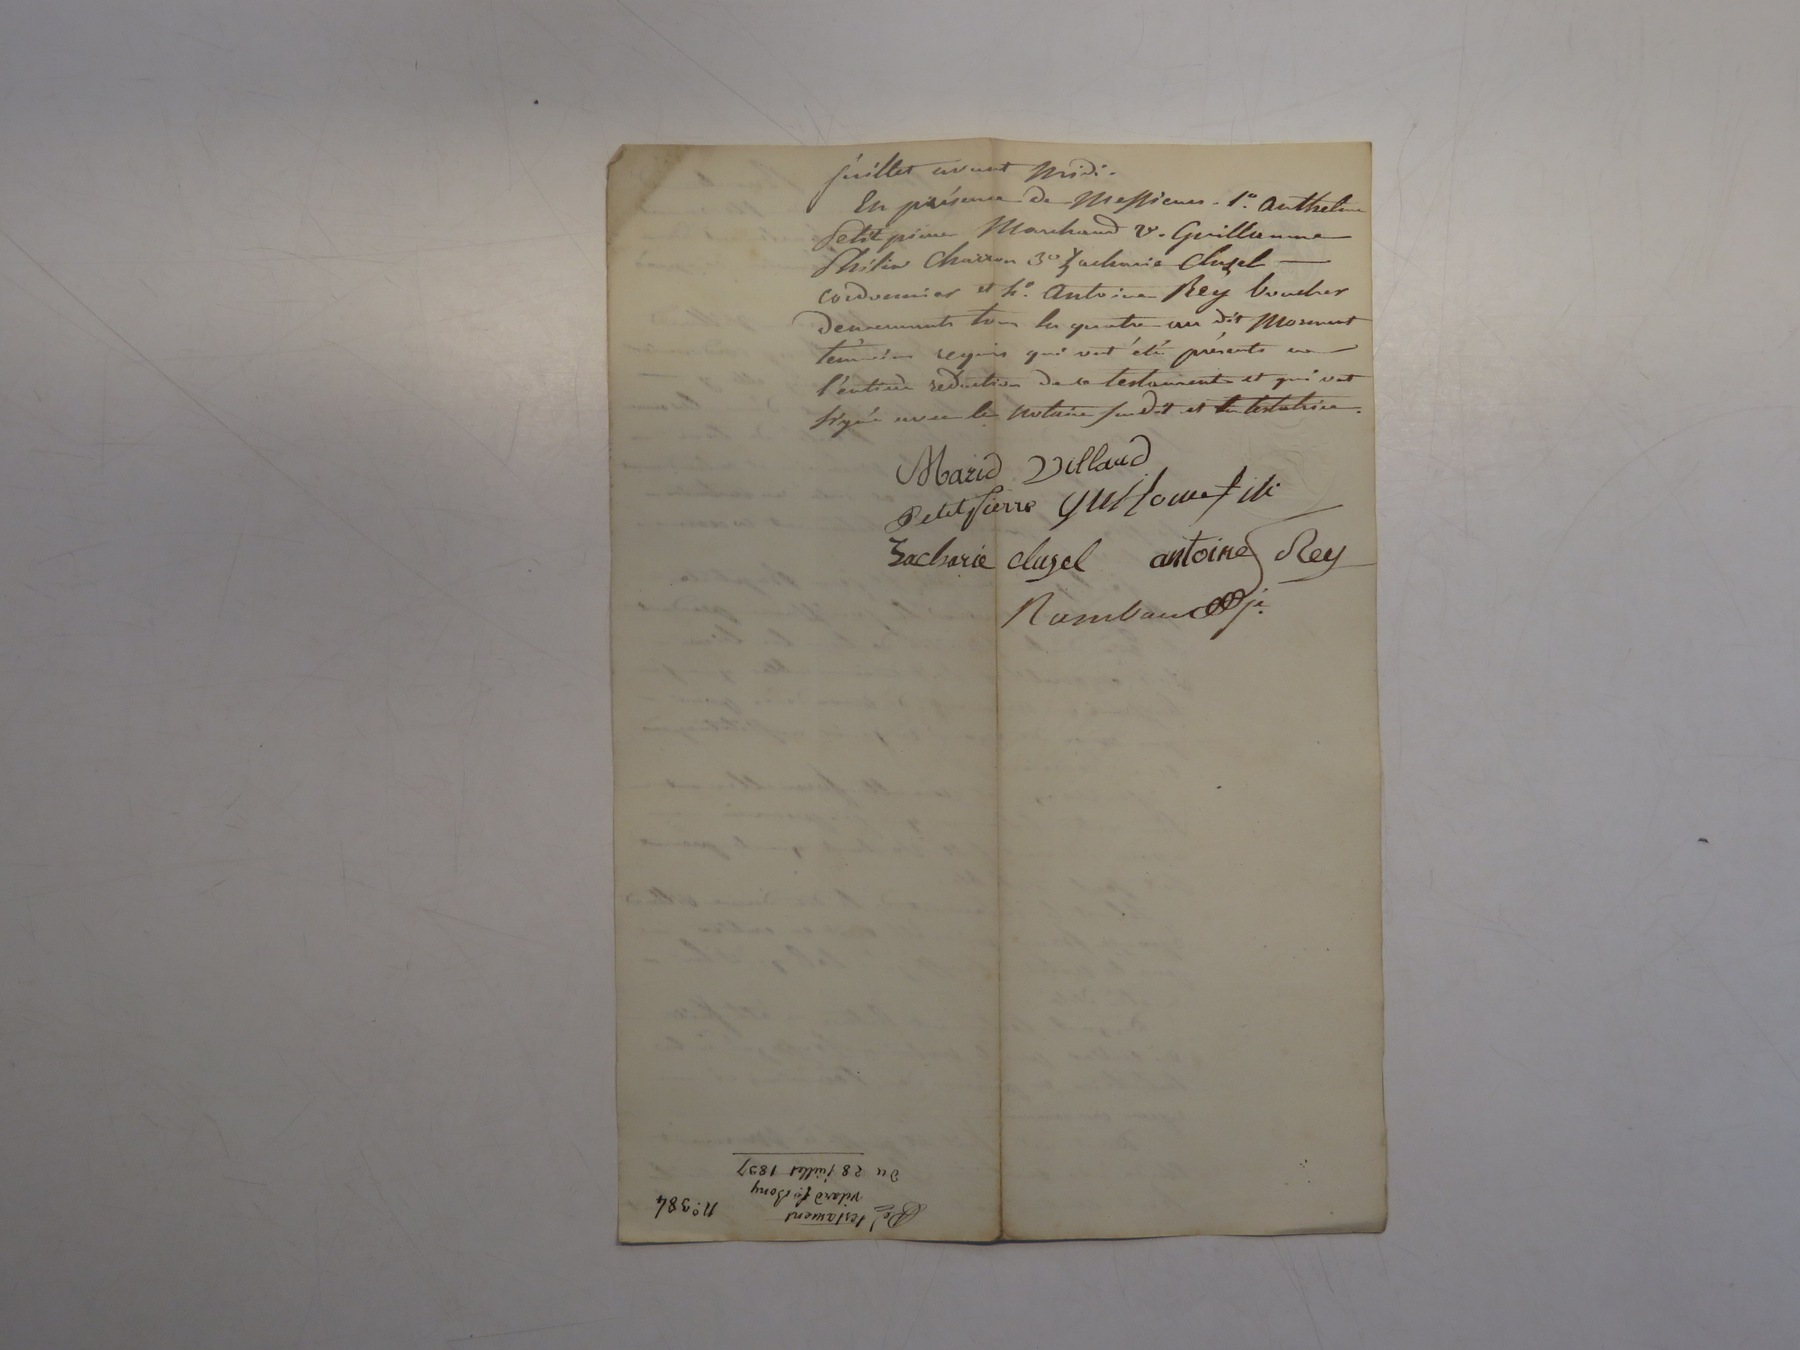 juillet avant Midi.
En présence de Messieurs. 1.° Anthelme
Petitpierre Marchand 2°. Guillaume
Philis Charron 3° Zacharie Cluzel
cordonnier et 4°. Antoine Rey boucher
demeurants tous les quatre au dit
témoins requis qui ont été présents
l'entière rédaction de ce testament et qui ont
signé avec le notaire susdit et la testatrice.
Marie Villard
Petitpierre
Zacharie cluzel antoine Rey
Rambaud
testament
vilard fe. Bony
Du 28 juillet 1837
N°. 384